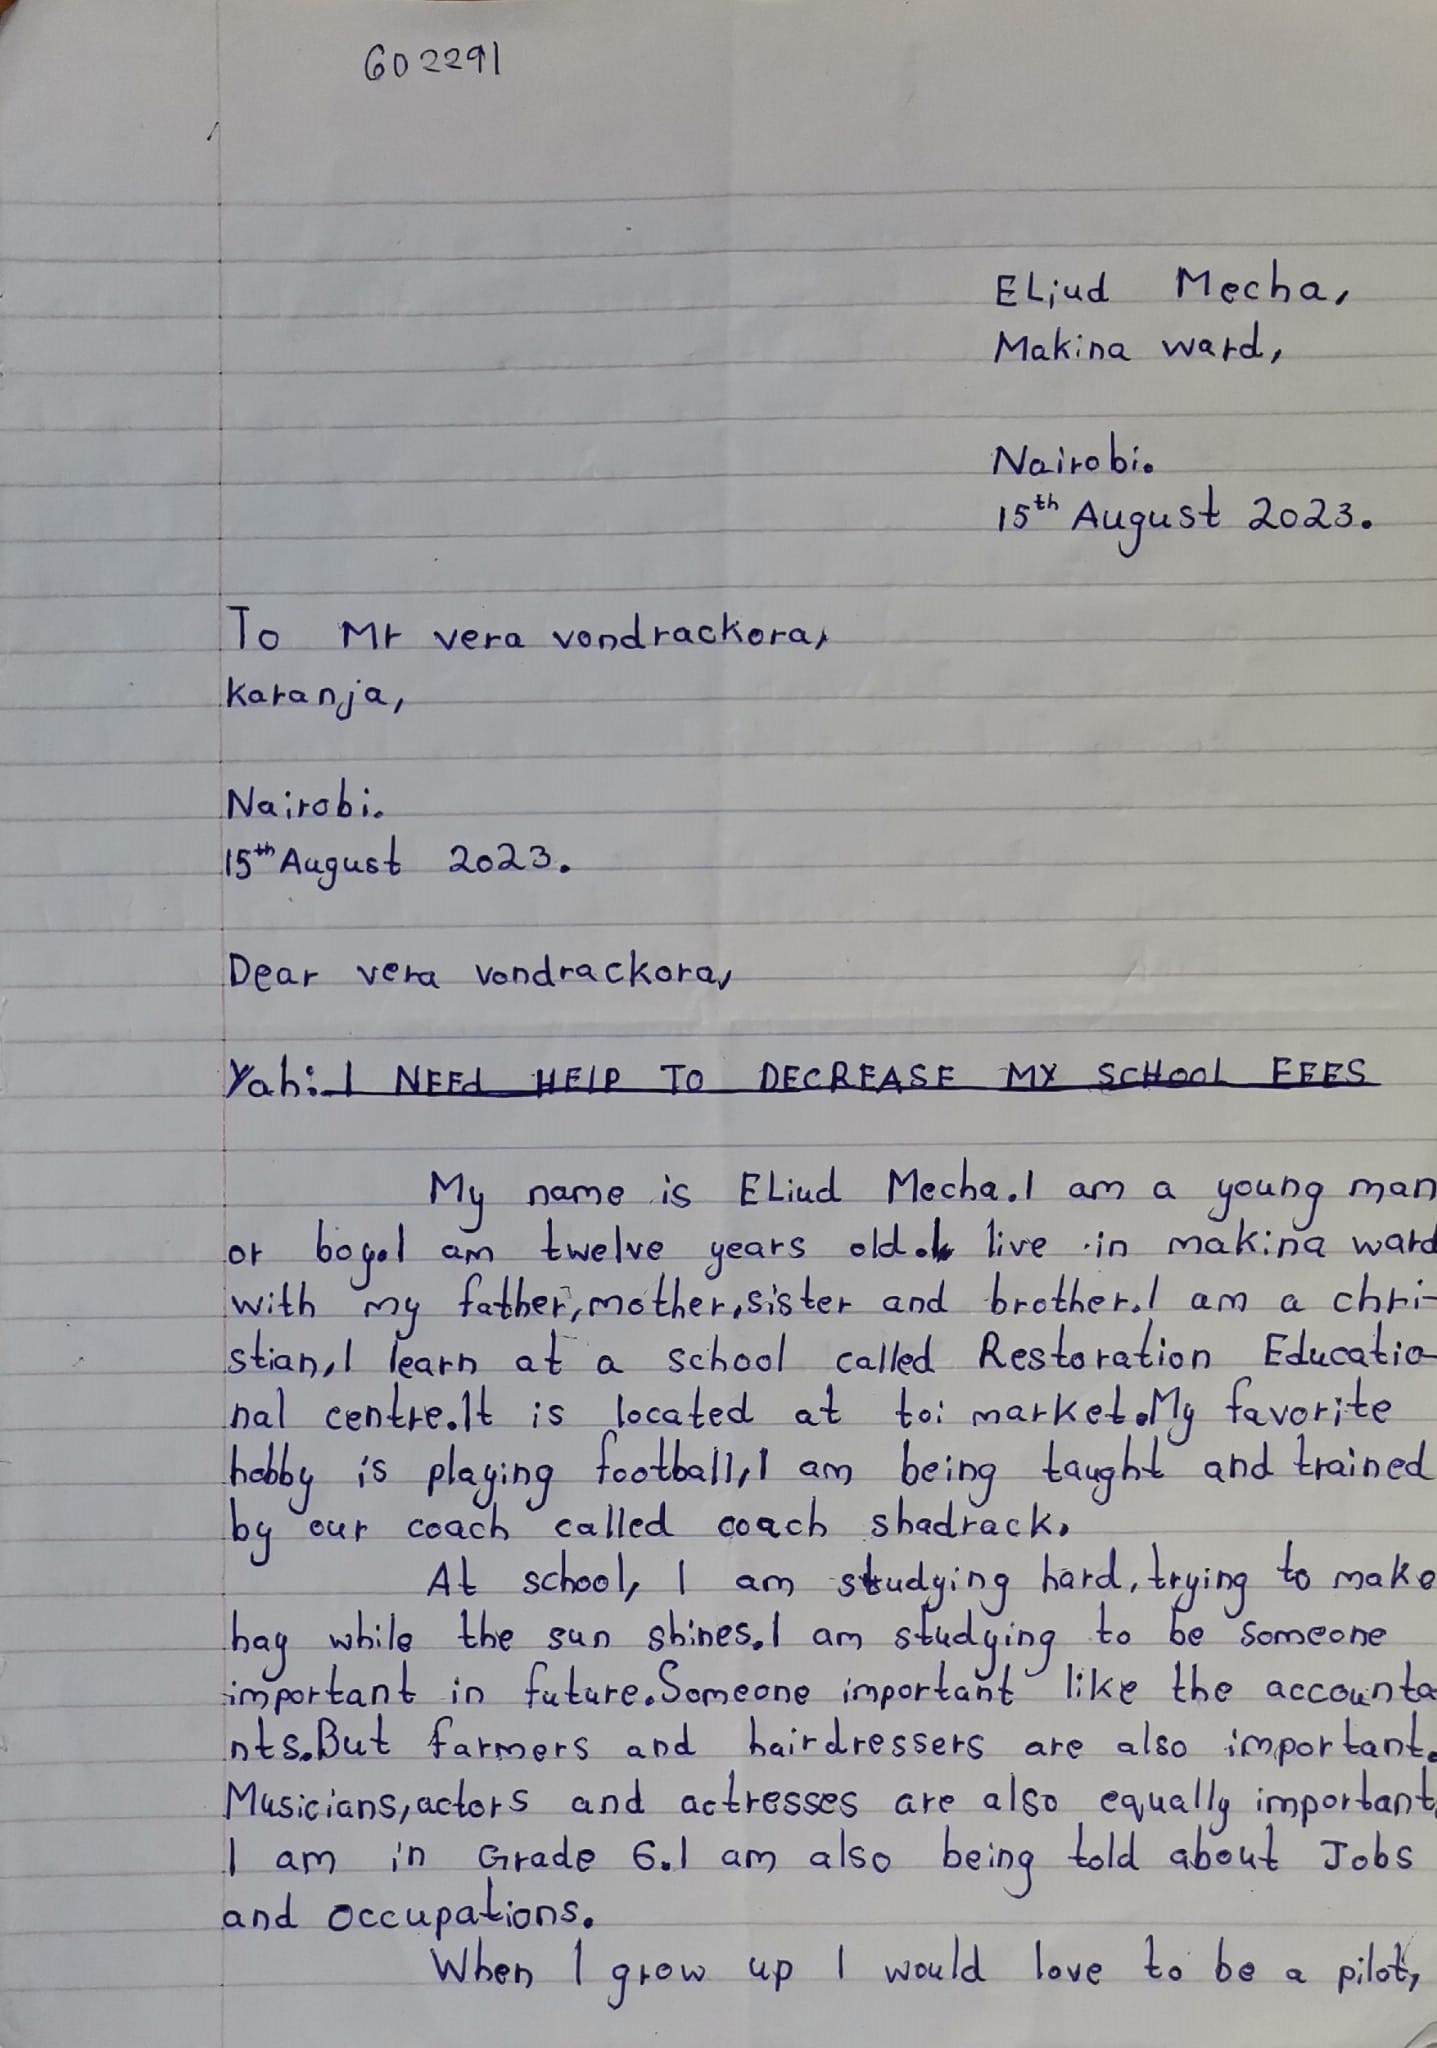 602291
ELiud Mecha,
Makina ward,
Nairobi.
15th August 2023.
To Mr vera vondrackora,
Karanja,
Nairobi.
15th August 2023.
Dear vera vondrackora,
Yah: I NEEd HELP TO DECREASE MY SCHOOL FEES
My name is ELiud Mecha. I am a young man
or boy. I am twelve years old. I live in makina ward
with my father, mother, sister and brother. I am a chri-
stian, I learn at a school called Restoration Educatio-
nal centre. It is located at toi market. My favorite
hobby is playing football, I am being taught and trained
by our coach called coach shadrack.
At school, I am studying hard, trying to make
hay while the sun shines. I am studying to be someone
important in future. Someone important like the accounta
nts. But farmers and hairdressers are also important.
Musicians, actors and actresses are also equally important.
I am in Grade 6. I am also being told about Jobs
and occupations.
When I grow up I would love to be a pilot,